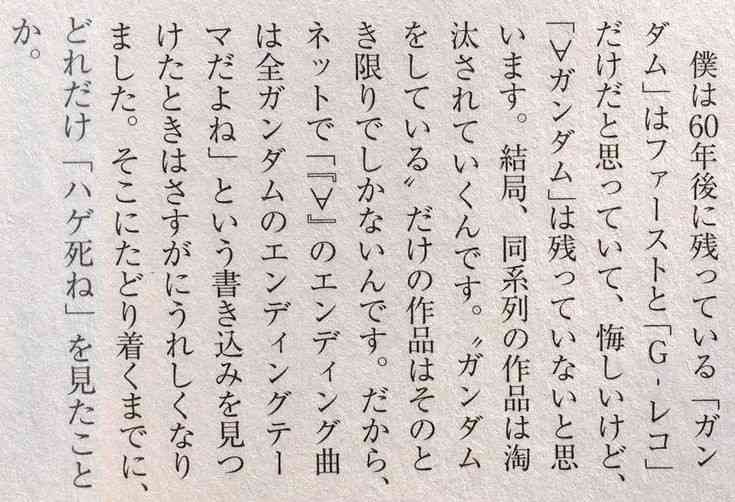 僕は60年後に残っている「ガン
ダム」はファーストと「G-レコ」
だけだと思っていて、悔しいけど、
「∀ガンダム」は残っていないと思
います。結局、同系列の作品は淘
汰されていくんです。〝ガンダム
をしている〟だけの作品はそのと
き限りでしかないんです。だから、
ネットで「『∀』のエンディング曲
は全ガンダムのエンディングテー
マだよね」という書き込みを見つ
けたときはさすがにうれしくなり
ました。そこにたどり着くまでに、
どれだけ「ハゲ死ね」を見たこと
か。